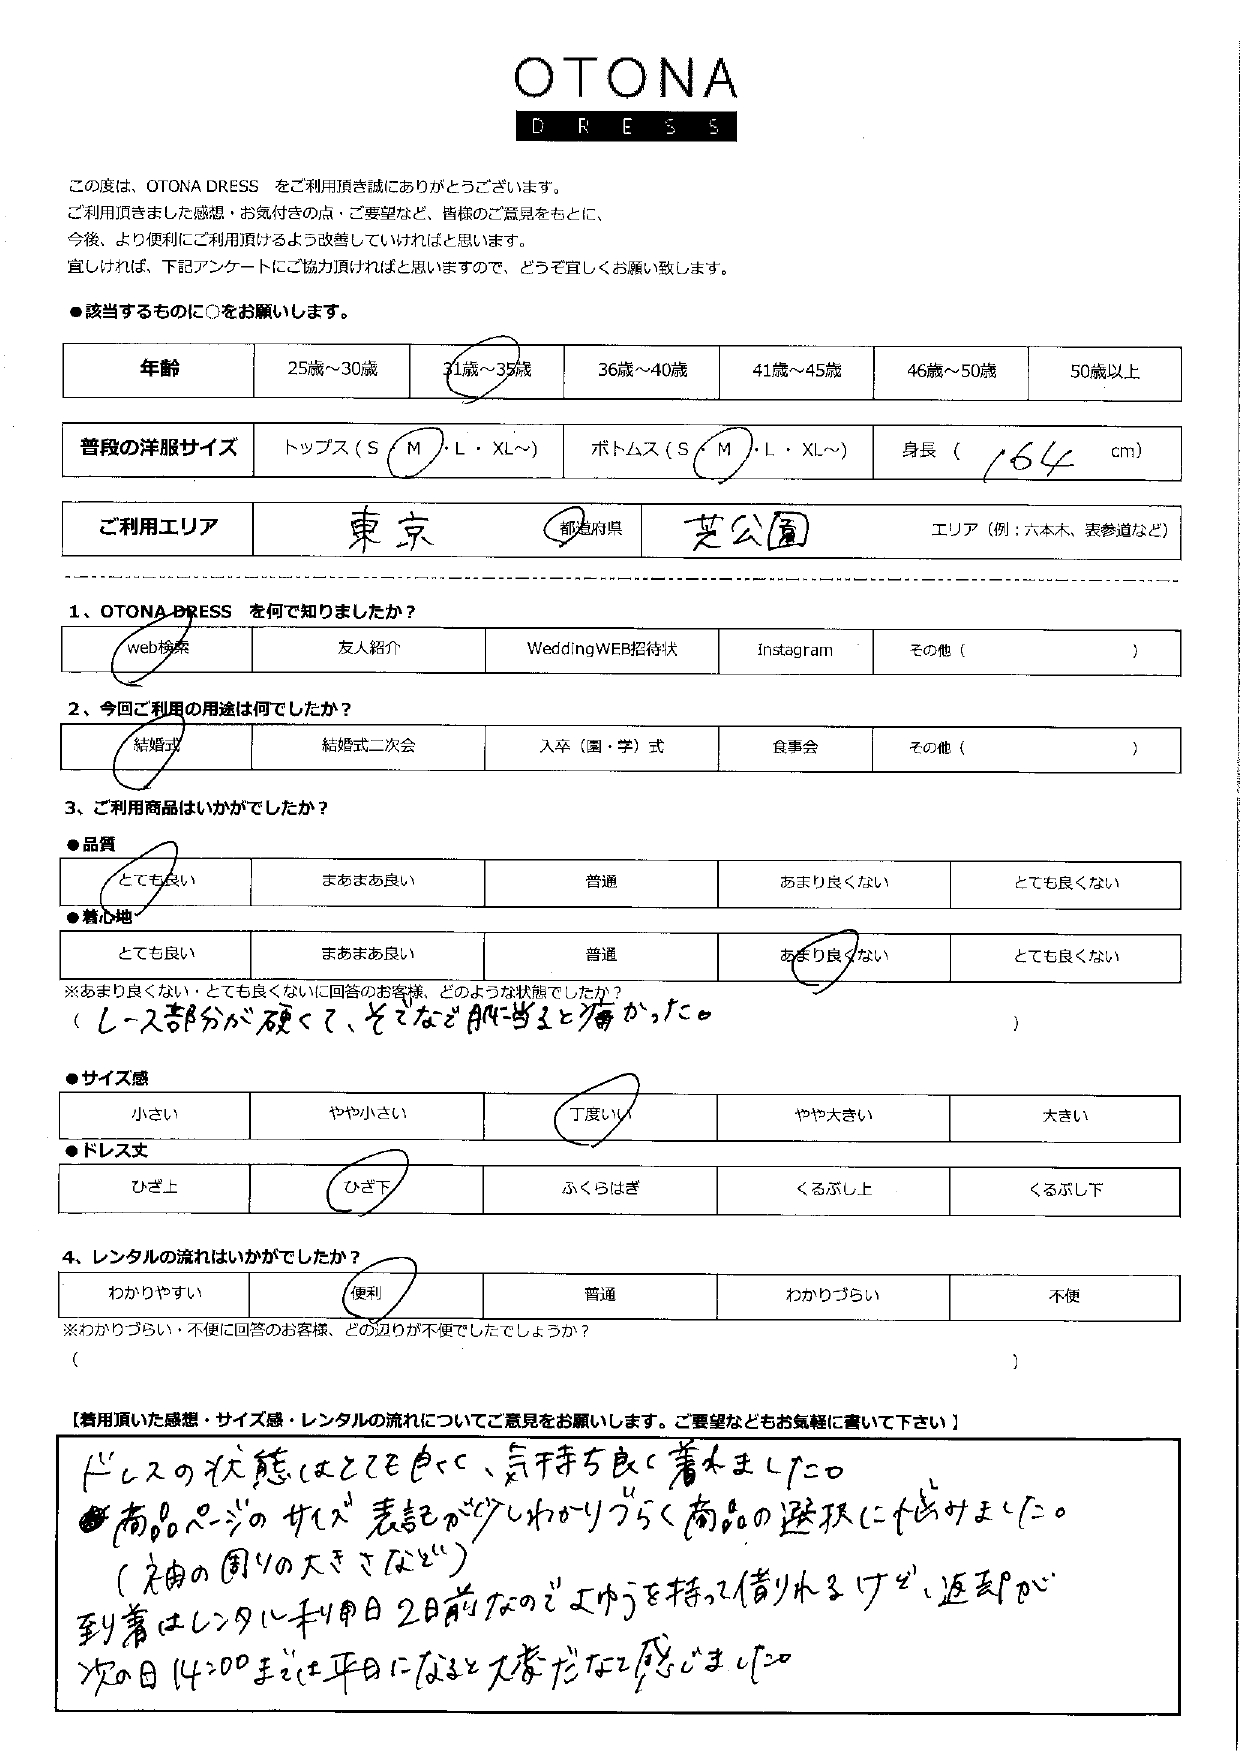 OTONA
DRESS
この度は、OTONA DRESS をご利用頂き誠にありがとうございます。
ご利用頂きました感想・お気付きの点・ご要望など、皆様のご意見をもとに、
今後、より便利にご利用頂けるよう改善していければと思います。
宜しければ、下記アンケートにご協力頂ければと思いますので、どうぞ宜しくお願い致します。
●該当するものに○をお願いします。
年齢 25歳～30歳 31歳～35歳 36歳～40歳 41歳～45歳 46歳～50歳 50歳以上
普段の洋服サイズ トップス ( S ・ M ・ L ・ XL～) ボトムス ( S ・ M ・ L ・ XL～) 身長 ( 164 cm)
ご利用エリア 東京 都道府県 芝公園 エリア（例：六本木、表参道など）
1、OTONA DRESS を何で知りましたか？
web検索 友人紹介 WeddingWEB招待状 Instagram その他（ ）
2、今回ご利用の用途は何でしたか？
結婚式 結婚式二次会 入卒（園・学）式 食事会 その他（ ）
3、ご利用商品はいかがでしたか？
●品質
とても良い まあまあ良い 普通 あまり良くない とても良くない
●着心地
とても良い まあまあ良い 普通 あまり良くない とても良くない
※あまり良くない・とても良くないに回答のお客様、どのような状態でしたか？
（ レース部分が硬くて、そでなど肌に当ると痛かった。 ）
●サイズ感
小さい やや小さい 丁度いい やや大きい 大きい
●ドレス丈
ひざ上 ひざ下 ふくらはぎ くるぶし上 くるぶし下
4、レンタルの流れはいかがでしたか？
わかりやすい 便利 普通 わかりづらい 不便
※わかりづらい・不便に回答のお客様、どの辺りが不便でしたでしょうか？
（ ）
【着用頂いた感想・サイズ感・レンタルの流れについてご意見をお願いします。ご要望などもお気軽に書いて下さい】
ドレスの状態はとても良くて、気持ち良く着れました。
商品ページのサイズ表記が少しわかりづらく商品の選択に悩みました。
（袖の周りの大きさなど）
到着はレンタル利用日2日前なのでよゆうを持って借りれるけど、返却が
次の日14:00までは平日になると大変だなと感じました。